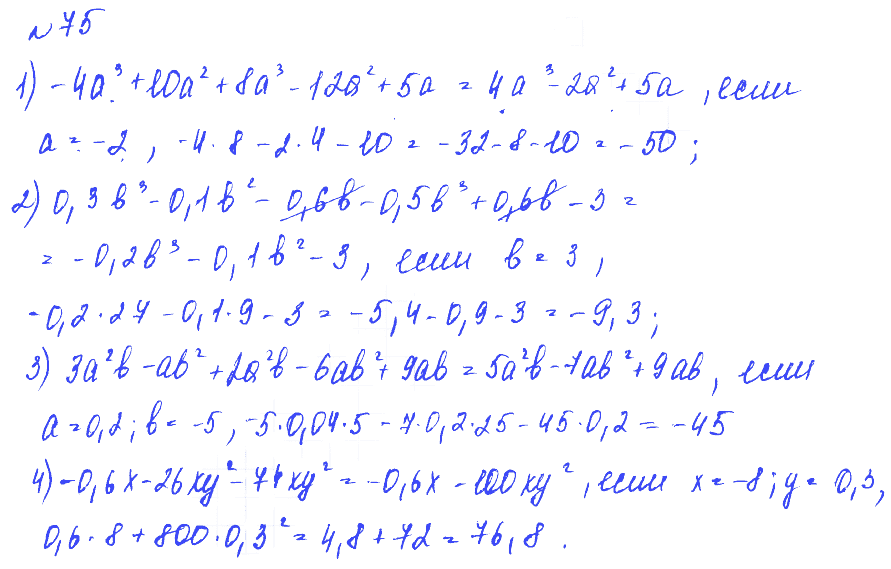 №75
1) -4a³+10a²+8a³-12a²+5a = 4a³-2a²+5a, если
a = -2, -4·8-2·4-10 = -32-8-10 = -50;
2) 0,3b³-0,1b²-0,6b-0,5b³+0,6b-3 =
= -0,2b³-0,1b²-3, если b = 3,
-0,2·27-0,1·9-3 = -5,4-0,9-3 = -9,3;
3) 3a²b-ab²+2a²b-6ab²+9ab = 5a²b-7ab²+9ab, если
a = 0,2; b = -5, -5·0,04·5-7·0,2·25-45·0,2 = -45
4) -0,6x-26xy²-74xy² = -0,6x-100xy², если x = -8; y = 0,3,
0,6·8+800·0,3² = 4,8+72 = 76,8.